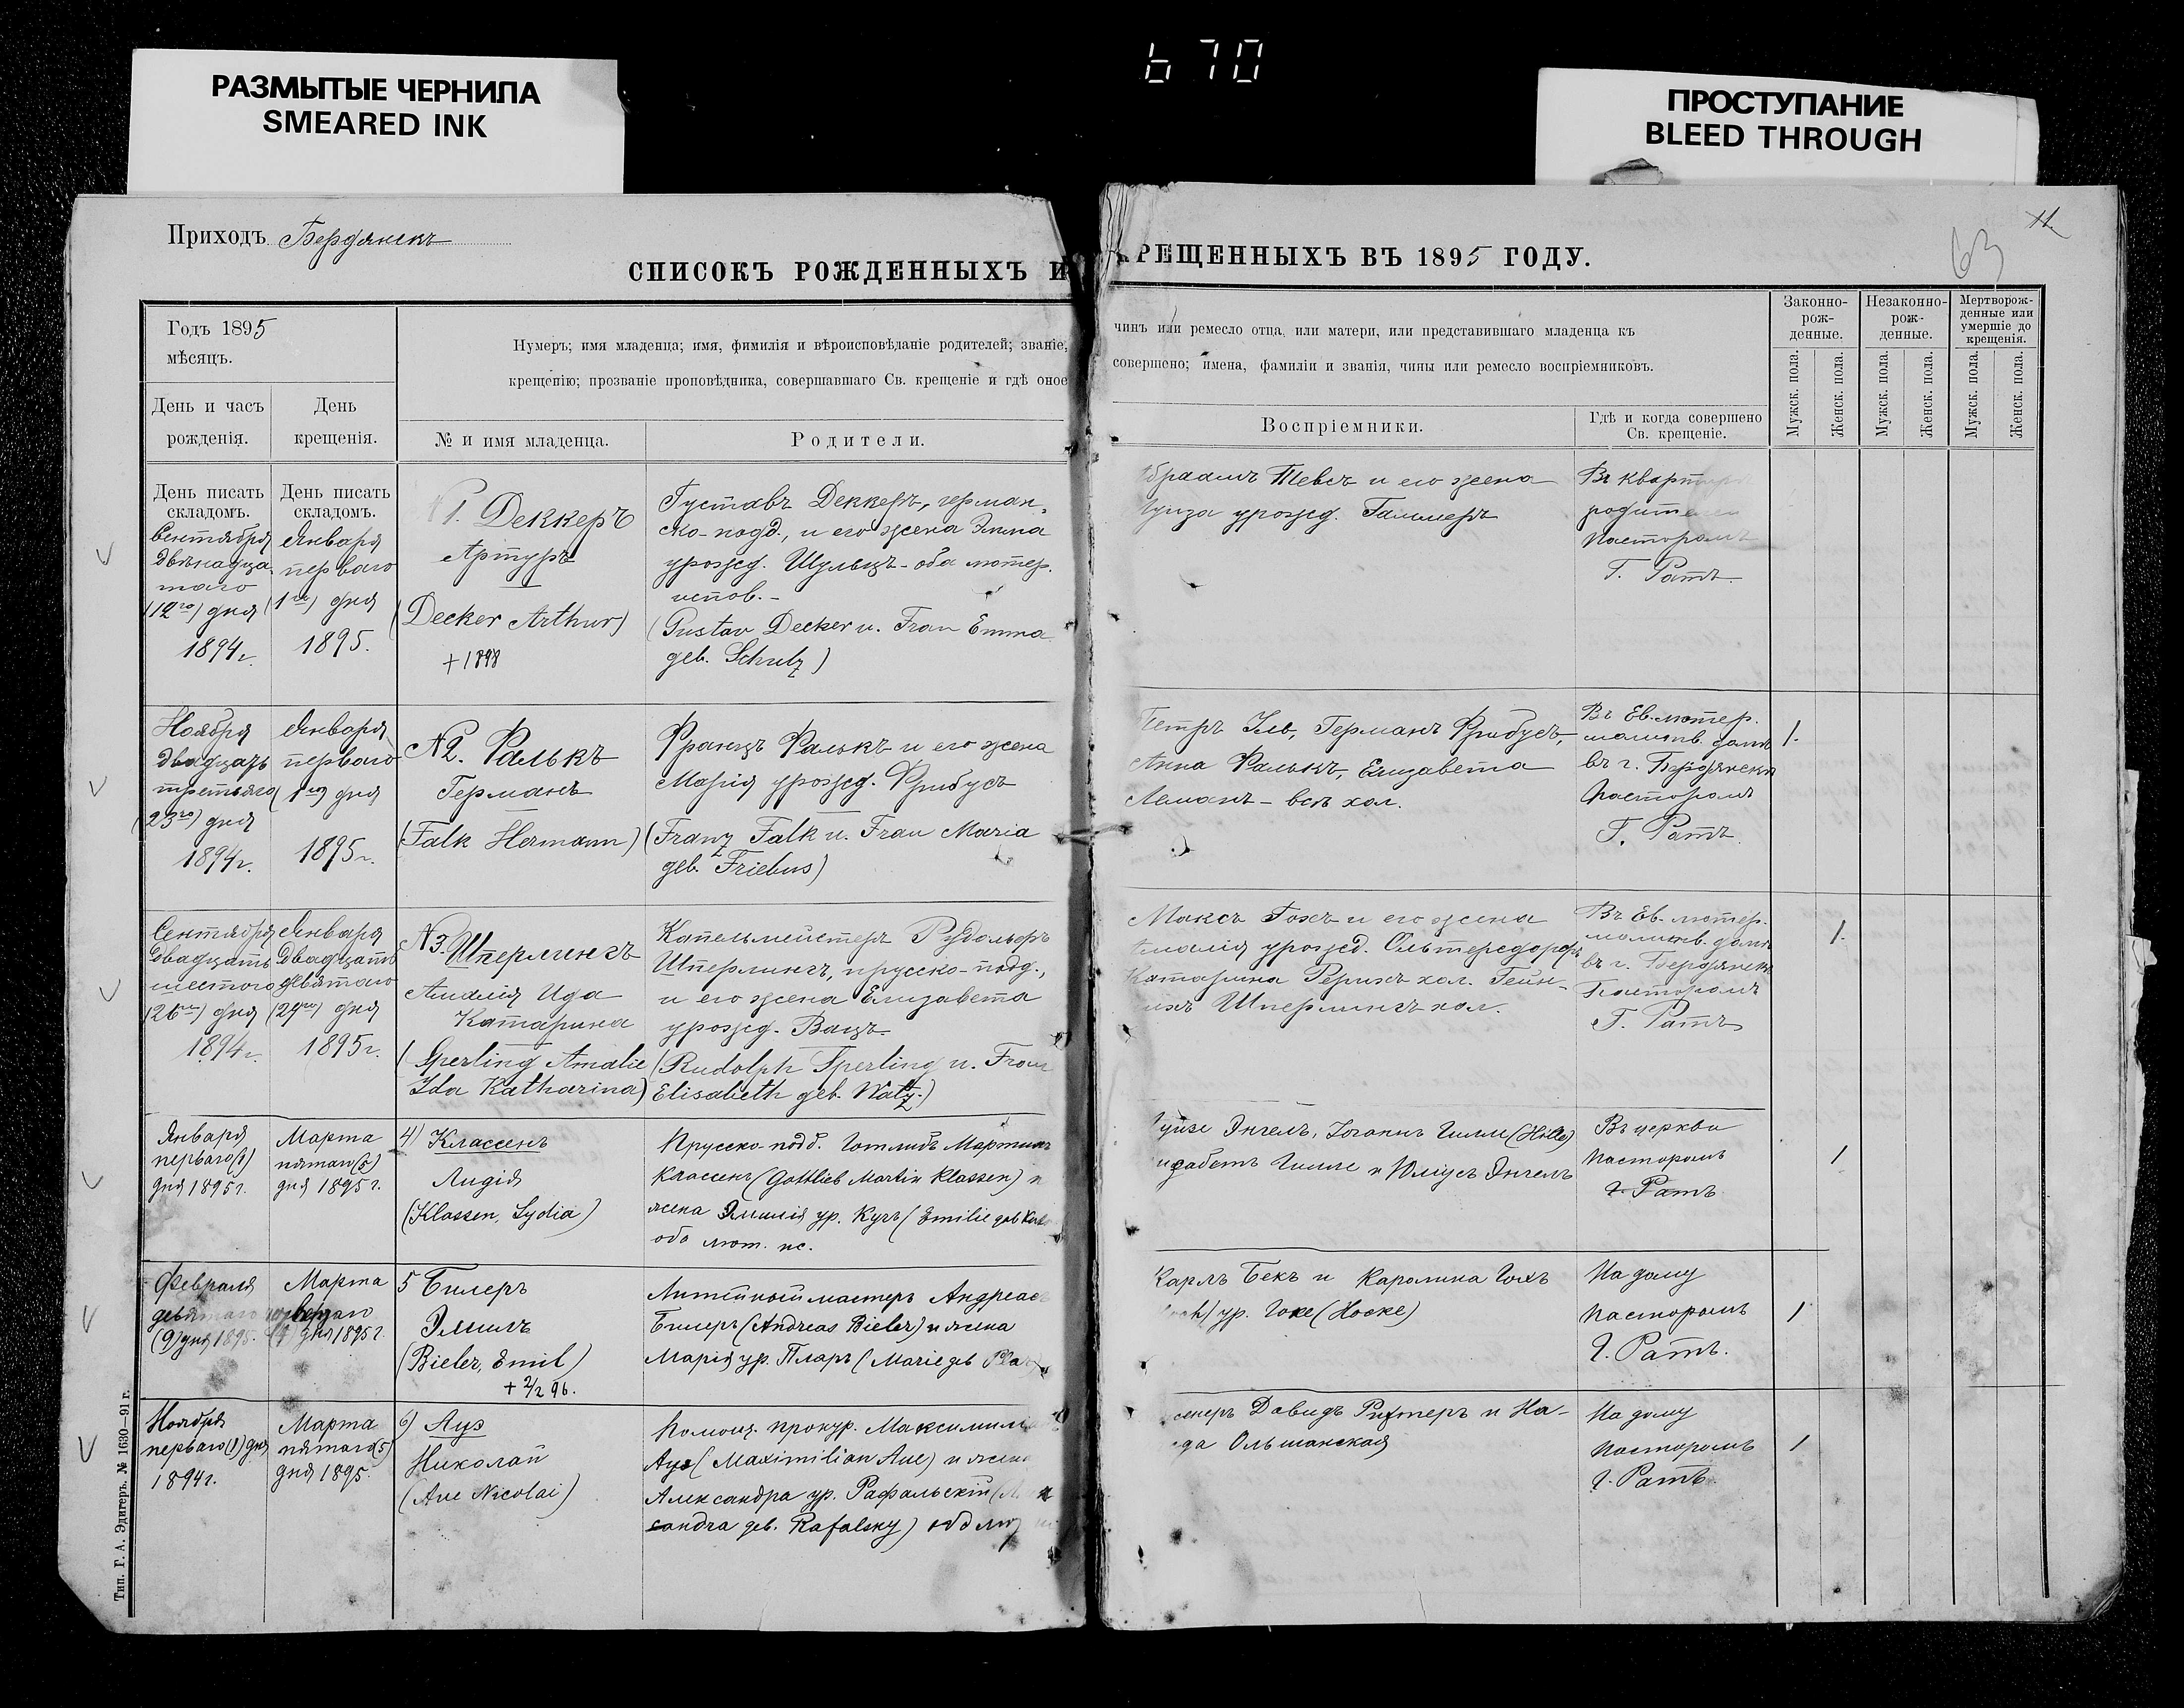 670
РАЗМЫТЫЕ ЧЕРНИЛА
SMEARED INK
ПРОСТУПАНИЕ
BLEED THROUGH
Приходъ Бердянскъ
63
СПИСОКЪ РОЖДЕННЫХЪ И
КРЕЩЕННЫХЪ ВЪ 1895 ГОДУ.
Годъ 1895
мѣсяцъ.
День и часъ
рожденія.
День
крещенія.
Нумеръ; имя младенца; имя, фимилія и вѣроисповѣданіе родителей; званіе,
крещенію; прозваніе проповѣдника, совершавшаго Св. крещеніе и гдѣ оное
№ и имя младенца.
Родители.
чинъ или ремесло отца, или матери, или представившаго младенца къ
совершено; имена, фамиліи и званія, чины или ремесло воспріемниковъ.
Воспріемники.
Гдѣ и когда совершено
Св. крещеніе.
Законно-
рож-
денные.
Незаконно-
рож-
денные.
Мертворож-
денные или
умершіе до
крещенія.
Мужск. пола.
Женск. пола.
Мужск. пола.
Женск. пола.
Мужск. пола.
Женск. пола.
День писать
складомъ.
Сентября
двѣнадца-
таго
(12го) дня
1894г.
День писать
складомъ.
Января
перваго
(1го) дня
1895.
№1. Деккеръ
Артуръ
(Decker Arthur)
+1898
Густавъ Деккеръ, герман-
ско-подд., и его жена Эмма
урожд. Шульцъ - оба лютер.
испов.-
(Gustav Decker u. Frau Emma
geb. Schulz)
и его жена
урожд.
Въ
Пасторомъ
Г. Ратъ.
Ноября
двадцать
третьяго
(23го) дня
1894г.
Января
перваго
(1го) дня
1895г.
№2. Фалькъ
Германъ
(Falk Hermann)
Францъ Фалькъ и его жена
Марія урожд. Фрибусъ
(Franz Falk u. Frau Maria
geb. Friebus)
Петръ Германъ Фрибусъ,
Анна Фалькъ, Елизавета
Леманъ - всѣ хол.
Въ Ев.-лютер.
молитв. домѣ
въ г. Бердянскѣ
Пасторомъ
Г. Ратъ.
1.
Сентября
двадцать
шестого
(26го) дня
1894г.
Января
двадцать
девятаго
(29го) дня
1895г.
№3. Шперлингъ
Амалія Ида
Катарина
(Sperling Amalie
Ida Katharina)
Капельмейстеръ Рудольфъ
Шперлингъ, прусско-подд.,
и его жена Елизавета
урожд. Вацъ.
(Rudolph Sperling u. Frau
Elisabeth geb. Watz.)
Максъ Гохъ и его жена
Амалія урожд. Ольтерсдорфъ,
Катарина хол. Гейн-
рихъ Шперлингъ хол.
Въ Ев.-лютер.
молитв. домѣ
въ г. Бердянскѣ
Пасторомъ
Г. Ратъ
1.
Января
перваго(1)
дня 1895г.
Марта
пятаго (5)
дня 1895г.
4) Классенъ
Лидія
(Klassen, Lydia)
Прусско-подд. Готлибъ Мартинъ
Классенъ (Gottlieb Martin Klassen) и
жена Эмилія ур. (Emilie geb
оба лют. ис.
Энгель, Іоганнъ Гилле (Hille)
Гилле и Юліусъ Энгель
Въ церкви
Пасторомъ
Г. Ратъ
1
Февраля
девятаго
(9) дня 1895.
Марта
дня 1895г.
5 Билеръ
Эмиль
(Bieler, Emil)
+ 2/2 96.
Литейный мастеръ Андреасъ
Билеръ (Andreas Bieler) и жена
Марія ур. (Marie geb
Карлъ Бекъ и Каролина Гохъ
ур. Гоке (Hocke)
На дому
Пасторомъ
Г. Ратъ.
1
Ноября
перваго(1) дня
1894г.
Марта
пятаго(5)
дня 1895.
6) Ауэ
Николай
(Aue Nicolai)
Помощ. прокур.
Ауэ (Maximilian Aue) и жена
Александра ур. Рафальскій
sandra geb. Rafalsky)
Давидъ Рихтеръ и На-
Ольшанская
На дому
Пасторомъ
Г. Ратъ
1
Тип. Г. А. Эдигеръ. № 1630—91 г.